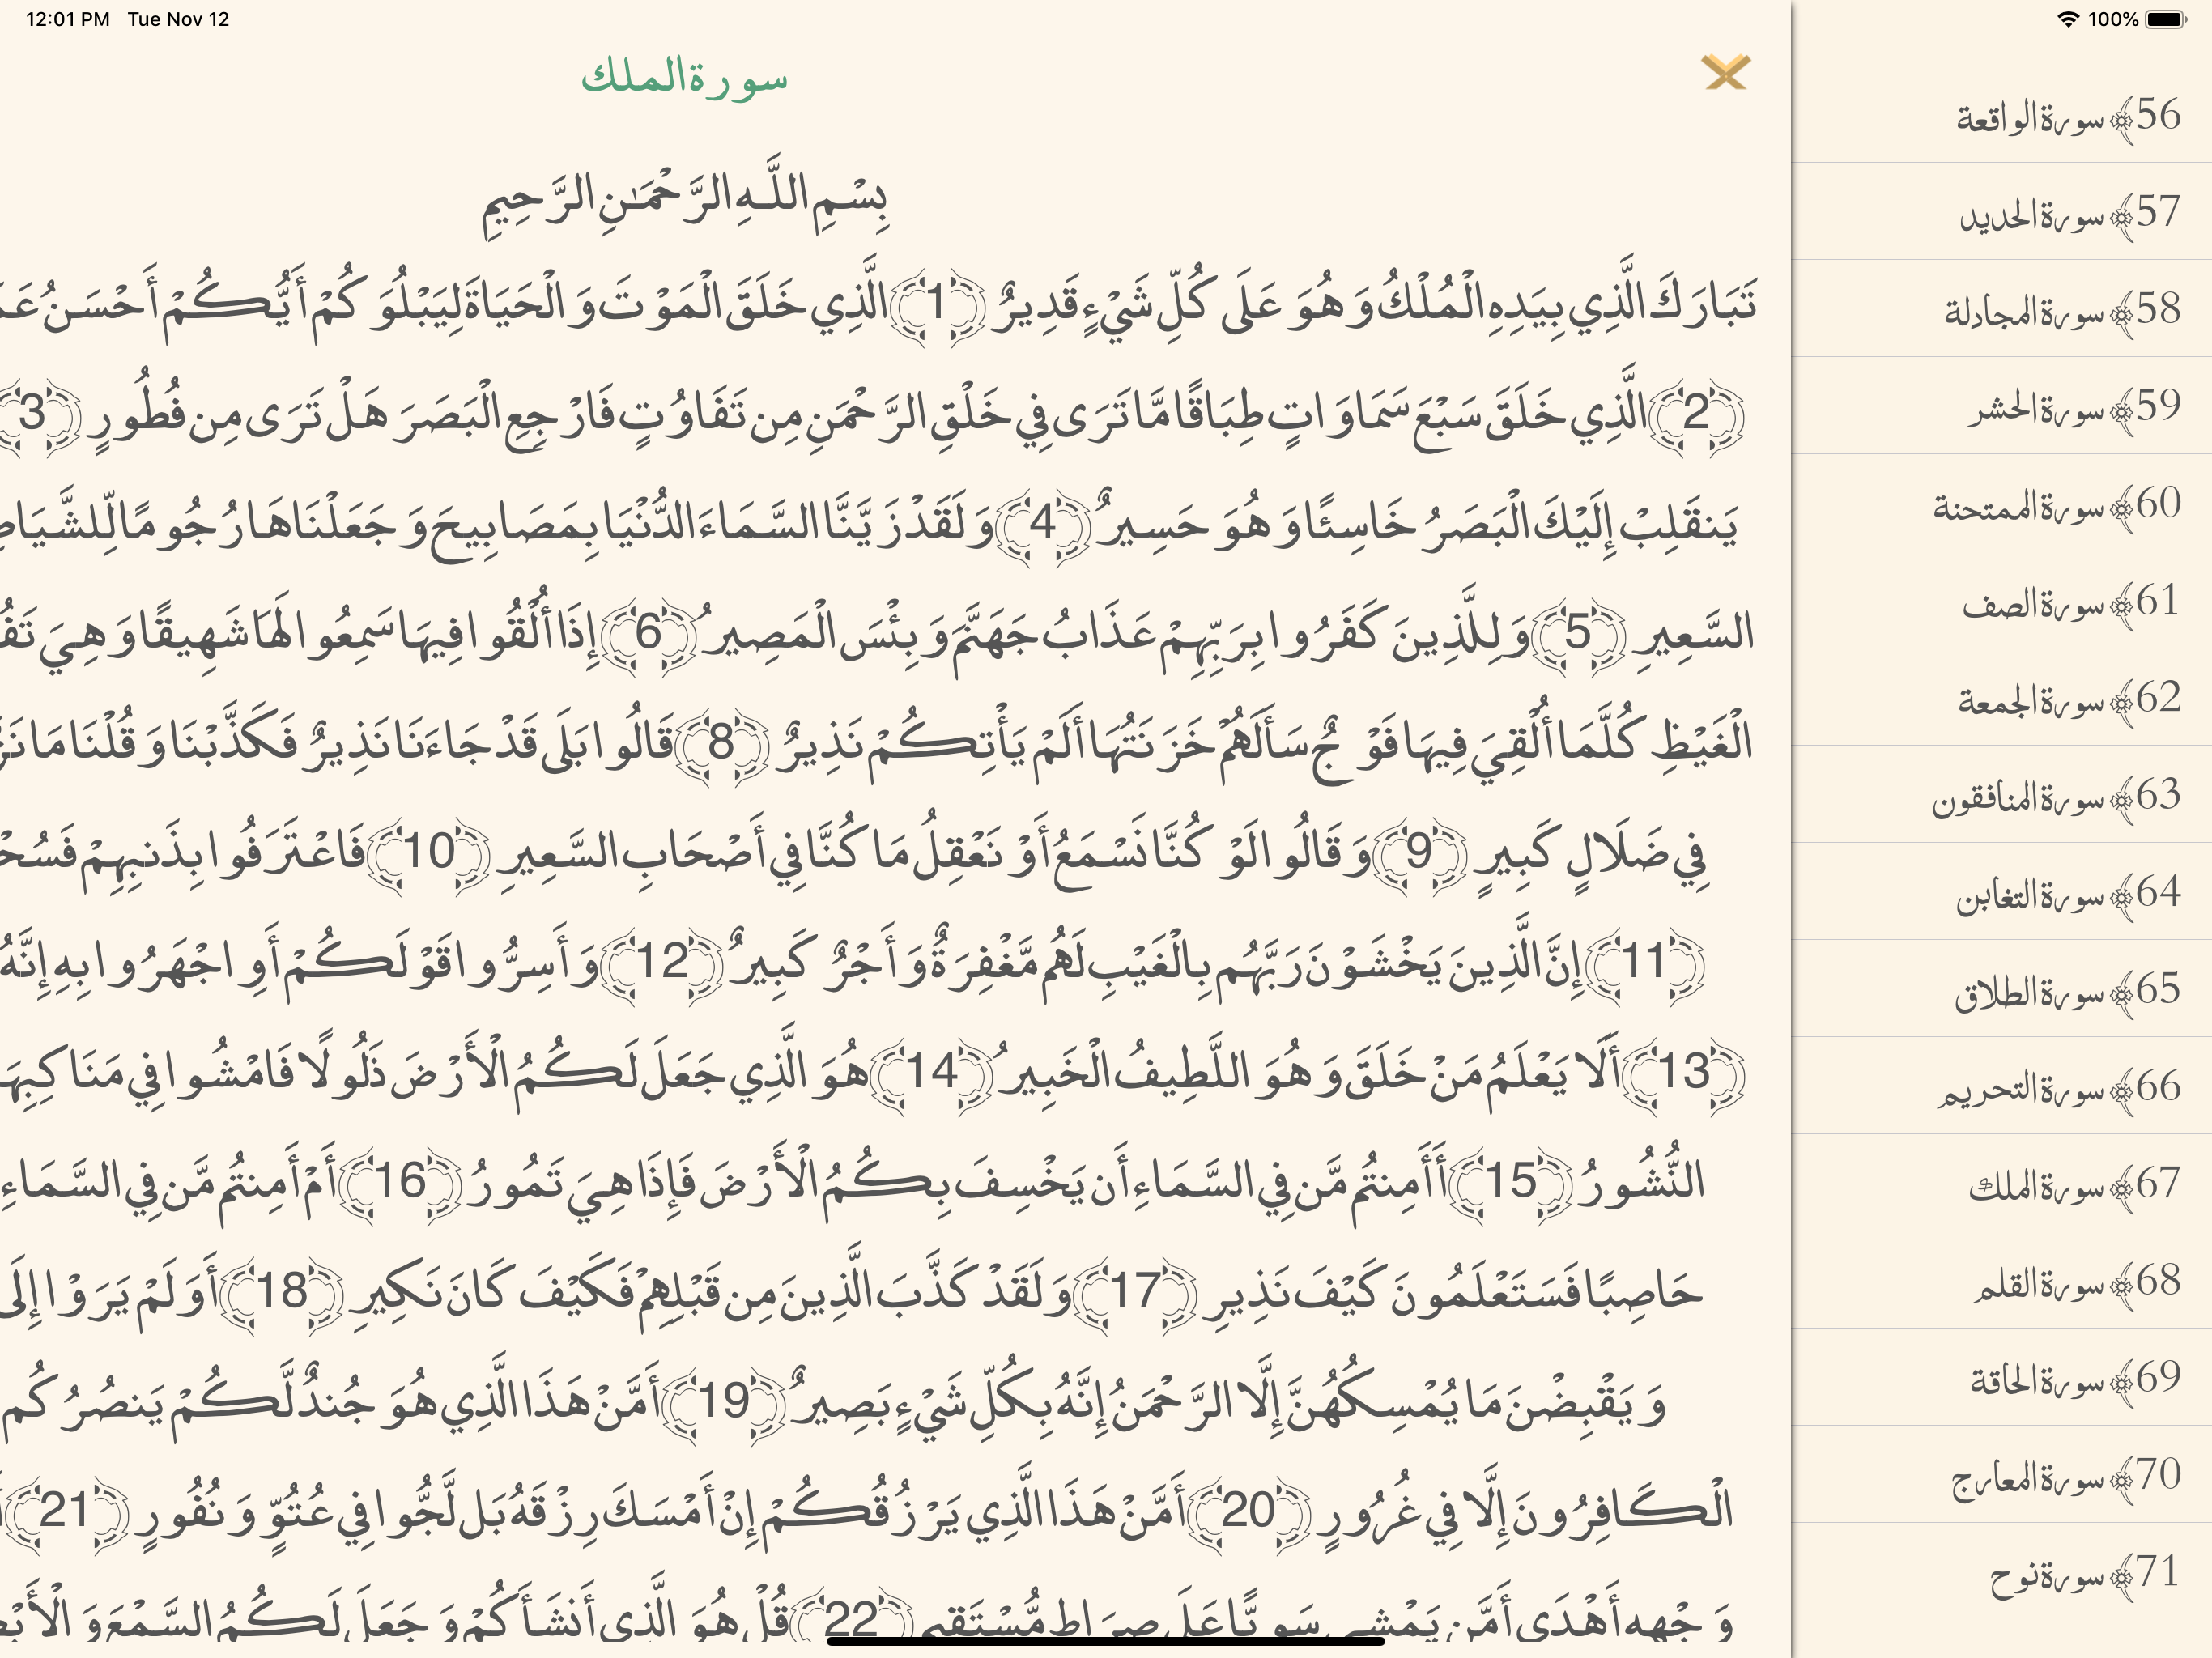 12:01 PM Tue Nov 12
100%
سورة الملك
بِسْمِ اللَّـهِ الرَّحْمَـٰنِ الرَّحِيمِ
تَبَارَكَ الَّذِي بِيَدِهِ الْمُلْكُ وَهُوَ عَلَى كُلِّ شَيْءٍ قَدِيرٌ ﴿1﴾ الَّذِي خَلَقَ الْمَوْتَ وَالْحَيَاةَ لِيَبْلُوَكُمْ أَيُّكُمْ أَحْسَنُ
﴿2﴾ الَّذِي خَلَقَ سَبْعَ سَمَاوَاتٍ طِبَاقًا مَّا تَرَى فِي خَلْقِ الرَّحْمَنِ مِن تَفَاوُتٍ فَارْجِعِ الْبَصَرَ هَلْ تَرَى مِن فُطُورٍ ﴿3﴾
يَنقَلِبْ إِلَيْكَ الْبَصَرُ خَاسِئًا وَهُوَ حَسِيرٌ ﴿4﴾ وَلَقَدْ زَيَّنَّا السَّمَاءَ الدُّنْيَا بِمَصَابِيحَ وَجَعَلْنَاهَا رُجُومًا
السَّعِيرِ ﴿5﴾ وَلِلَّذِينَ كَفَرُوا بِرَبِّهِمْ عَذَابُ جَهَنَّمَ وَبِئْسَ الْمَصِيرُ ﴿6﴾ إِذَا أُلْقُوا فِيهَا سَمِعُوا لَهَا شَهِيقًا وَهِيَ
الْغَيْظِ كُلَّمَا أُلْقِيَ فِيهَا فَوْجٌ سَأَلَهُمْ خَزَنَتُهَا أَلَمْ يَأْتِكُمْ نَذِيرٌ ﴿8﴾ قَالُوا بَلَى قَدْ جَاءَنَا نَذِيرٌ فَكَذَّبْنَا وَقُلْنَا مَا
فِي ضَلَالٍ كَبِيرٍ ﴿9﴾ وَقَالُوا لَوْ كُنَّا نَسْمَعُ أَوْ نَعْقِلُ مَا كُنَّا فِي أَصْحَابِ السَّعِيرِ ﴿10﴾ فَاعْتَرَفُوا بِذَنبِهِمْ
﴿11﴾ إِنَّ الَّذِينَ يَخْشَوْنَ رَبَّهُم بِالْغَيْبِ لَهُم مَّغْفِرَةٌ وَأَجْرٌ كَبِيرٌ ﴿12﴾ وَأَسِرُّوا قَوْلَكُمْ أَوِ اجْهَرُوا بِهِ إِنَّهُ
﴿13﴾ أَلَا يَعْلَمُ مَنْ خَلَقَ وَهُوَ اللَّطِيفُ الْخَبِيرُ ﴿14﴾ هُوَ الَّذِي جَعَلَ لَكُمُ الْأَرْضَ ذَلُولًا فَامْشُوا فِي مَنَاكِبِهَا
النُّشُورُ ﴿15﴾ أَأَمِنتُم مَّن فِي السَّمَاءِ أَن يَخْسِفَ بِكُمُ الْأَرْضَ فَإِذَا هِيَ تَمُورُ ﴿16﴾ أَمْ أَمِنتُم مَّن فِي السَّمَاءِ
حَاصِبًا فَسَتَعْلَمُونَ كَيْفَ نَذِيرِ ﴿17﴾ وَلَقَدْ كَذَّبَ الَّذِينَ مِن قَبْلِهِمْ فَكَيْفَ كَانَ نَكِيرِ ﴿18﴾ أَوَلَمْ يَرَوْا إِلَى
وَيَقْبِضْنَ مَا يُمْسِكُهُنَّ إِلَّا الرَّحْمَنُ إِنَّهُ بِكُلِّ شَيْءٍ بَصِيرٌ ﴿19﴾ أَمَّنْ هَذَا الَّذِي هُوَ جُندٌ لَّكُمْ يَنصُرُكُم
الْكَافِرُونَ إِلَّا فِي غُرُورٍ ﴿20﴾ أَمَّنْ هَذَا الَّذِي يَرْزُقُكُمْ إِنْ أَمْسَكَ رِزْقَهُ بَل لَّجُّوا فِي عُتُوٍّ وَنُفُورٍ ﴿21﴾
وَجْهِهِ أَهْدَى أَمَّن يَمْشِي سَوِيًّا عَلَى صِرَاطٍ مُّسْتَقِيمٍ ﴿22﴾ قُلْ هُوَ الَّذِي أَنشَأَكُمْ وَجَعَلَ لَكُمُ السَّمْعَ
56﴾ سورة الواقعة
57﴾ سورة الحديد
58﴾ سورة المجادلة
59﴾ سورة الحشر
60﴾ سورة الممتحنة
61﴾ سورة الصف
62﴾ سورة الجمعة
63﴾ سورة المنافقون
64﴾ سورة التغابن
65﴾ سورة الطلاق
66﴾ سورة التحريم
67﴾ سورة الملك
68﴾ سورة القلم
69﴾ سورة الحاقة
70﴾ سورة المعارج
71﴾ سورة نوح